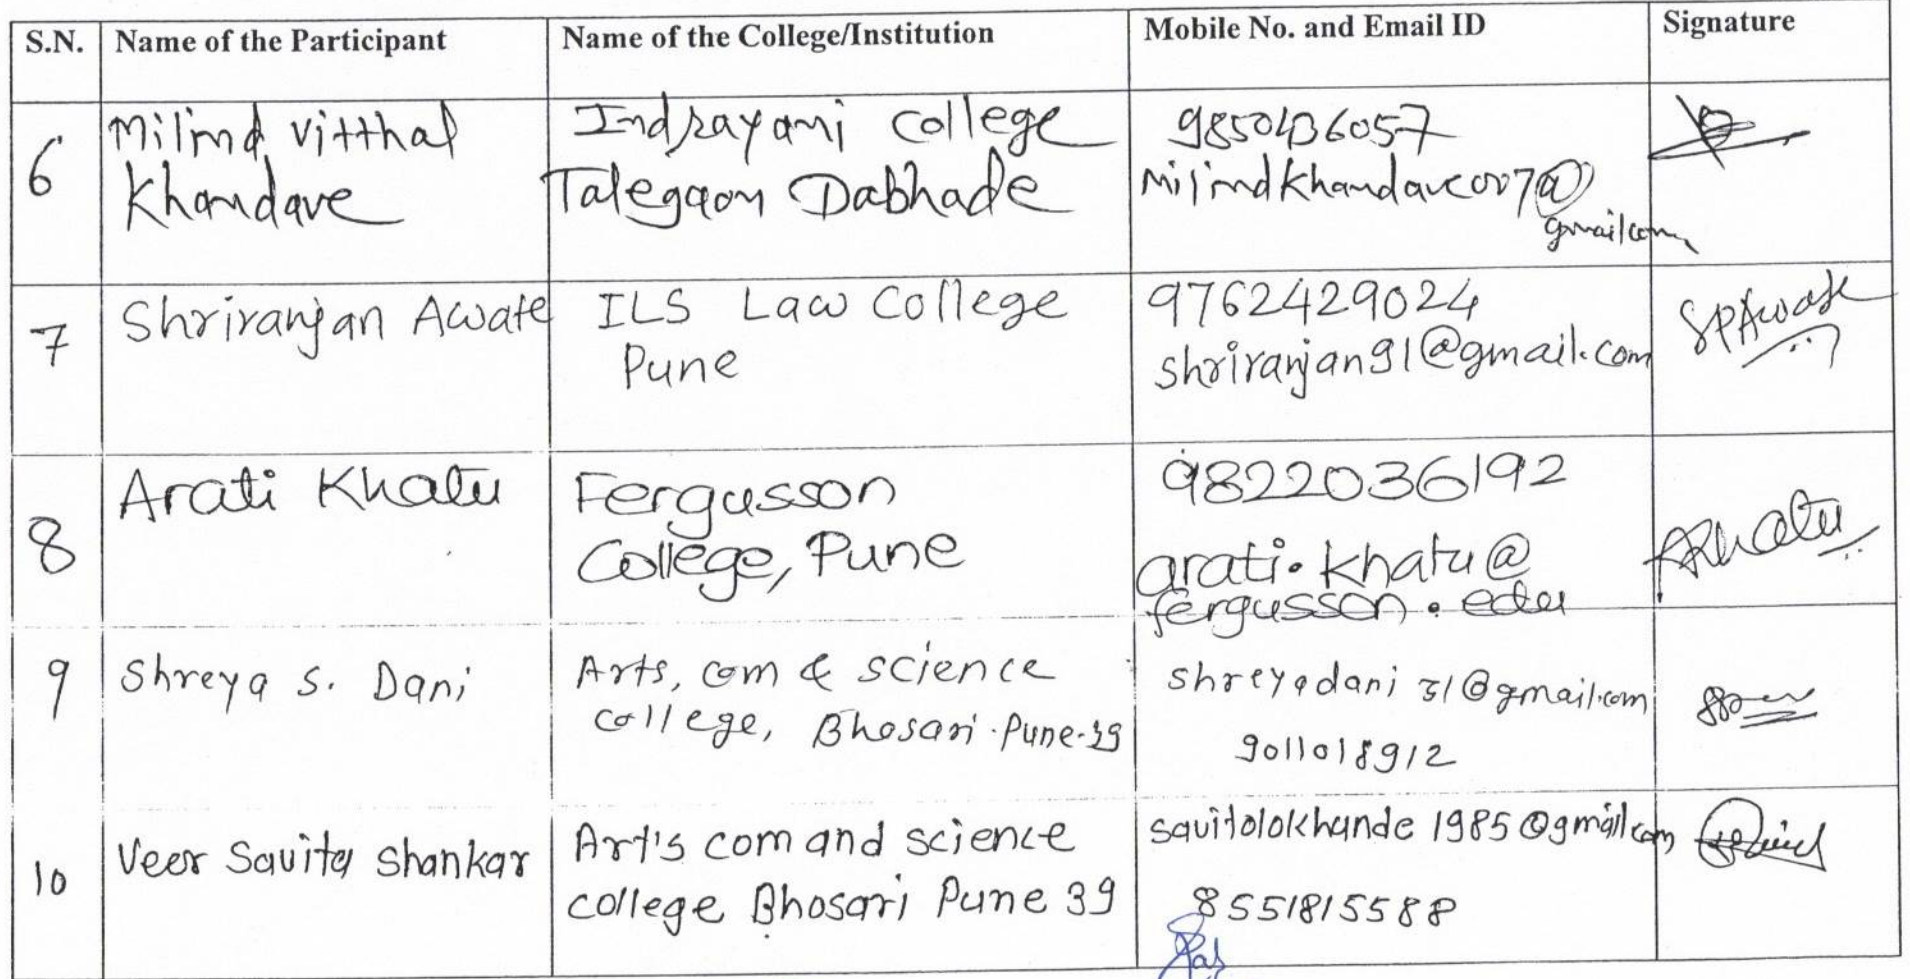 S.N. Name of the Participant Name of the College/Institution Mobile No. and Email ID Signature
6 Milind Vitthal Khandave
Indrayani College
Talegaon Dabhade
9850436057
Milindkhandave007@
gmail.com
7 Shriranjan Awate
ILS Law College
Pune
9762429024
shriranjan91@gmail.com
SPAwate
8 Arati Khatu
Fergusson
College, Pune
9822036192
arati.khatu@
fergusson.edu
ARKhatu
9 Shreya S. Dani
Arts, com & science
college, Bhosari.Pune-39
shreyadani31@gmail.com
9011018912
10 Veer Savita Shankar
Art's com and science
college Bhosari Pune 39
savitalokhande1985@gmail.com
8551815588